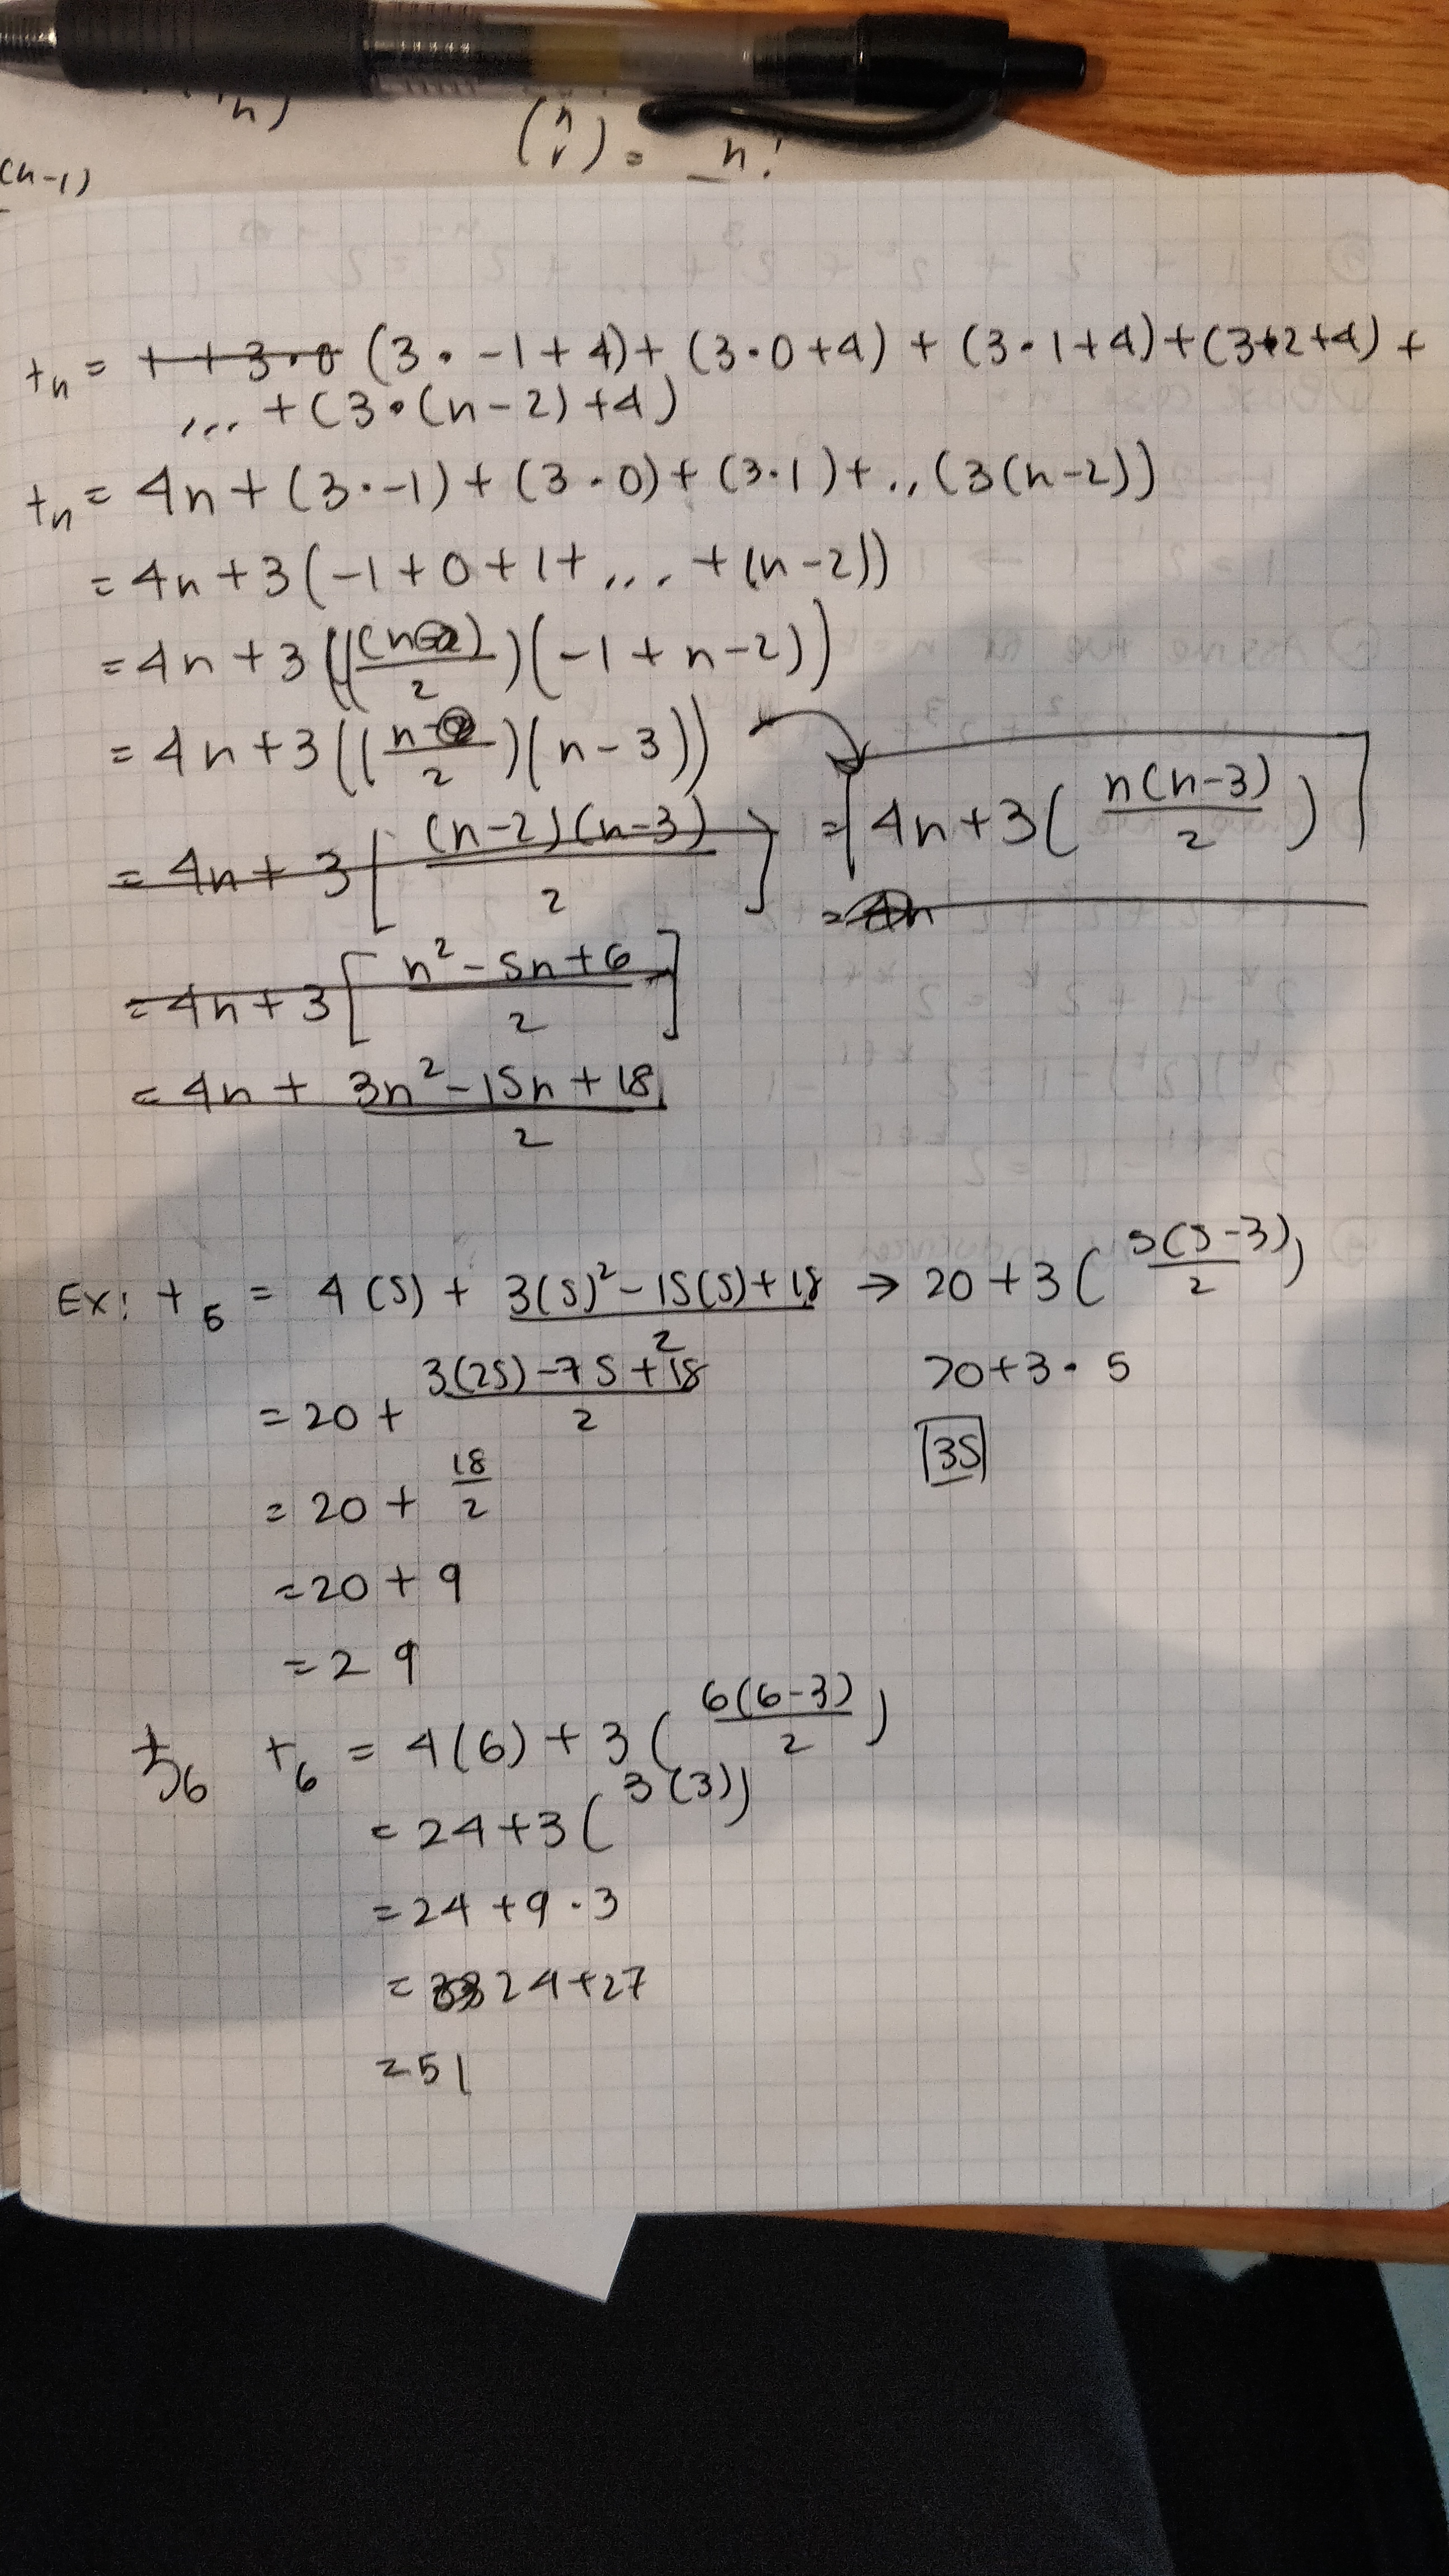 n)
(n-1)
(n r) = n!
tₙ = 1 + 3·0 (3·-1+4)+(3·0+4)+(3·1+4)+(3·2+4)+
... +(3·(n-2)+4)
tₙ = 4n+(3·-1)+(3·0)+(3·1)+..(3(n-2))
= 4n+3(-1+0+1+... +(n-2))
= 4n+3(((n)/2)(-1+n-2))
= 4n+3((n/2)(n-3))
= 4n+3[(n-2)(n-3)/2]
= 4n+3(n(n-3)/2)
= 4n
= 4n+3[n²-5n+6/2]
= 4n+ 3n²-15n+18/2
Ex: t₅ = 4(5)+ 3(5)²-15(5)+18/2 → 20+3(5(5-3)/2)
= 20+ 3(25)-75+18/2
20+3·5
= 20+ 18/2
35
= 20+9
= 29
t₆ t₆ = 4(6)+3(6(6-3)/2)
= 24+3(3(3))
= 24+9·3
= 24+27
= 51